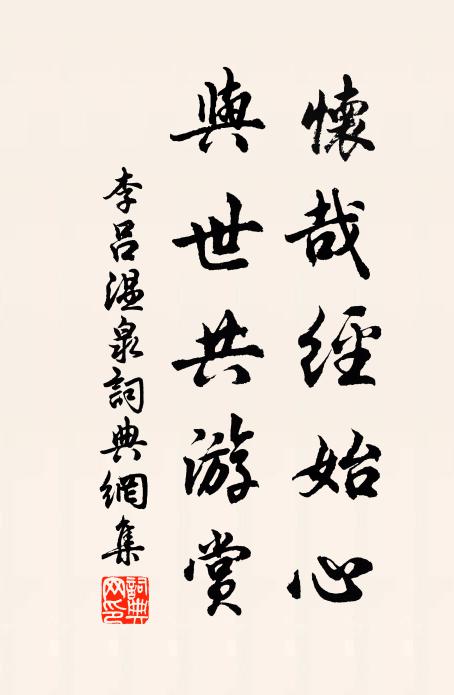 懷哉經始心
與世共游賞
李呂溫泉詞典網集
詞典網印